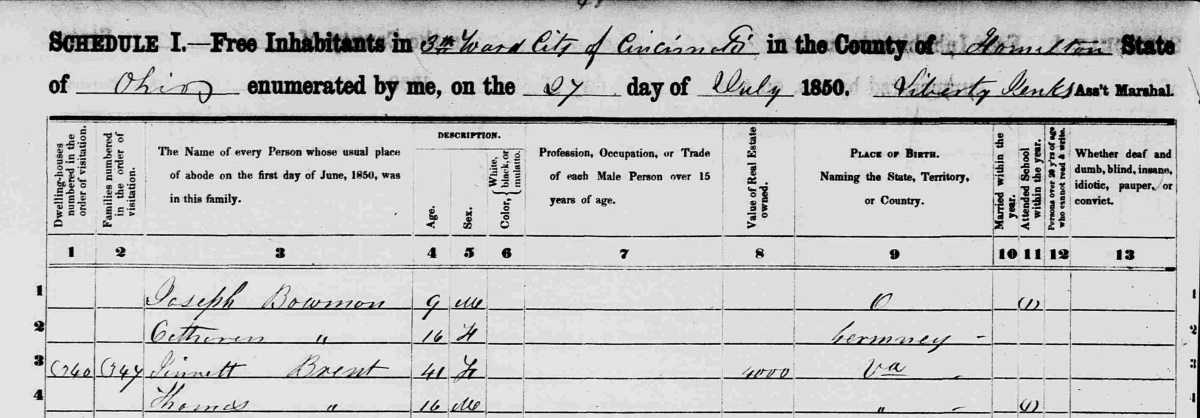 SCHEDULE I.—Free Inhabitants in 3rd Ward City of Cincinnati in the County of Hamilton State
of Ohio enumerated by me, on the 27 day of July 1850. Liberty Jenks Ass't Marshal.
Dwelling-houses numbered in the order of visitation.
Families numbered in the order of visitation.
The Name of every Person whose usual place
of abode on the first day of June, 1850, was
in this family.
DESCRIPTION.
Age.
Sex.
Color, { White, black, or mulatto.
Profession, Occupation, or Trade
of each Male Person over 15
years of age.
Value of Real Estate owned.
PLACE OF BIRTH.
Naming the State, Territory,
or Country.
Married within the year.
Attended School within the year.
Persons over 20 y'rs of age who cannot read & write.
Whether deaf and
dumb, blind, insane,
idiotic, pauper, or
convict.
1 2 3 4 5 6 7 8 9 10 11 12 13
1 Joseph Bowmon 9 M O (1) 1
2 Cetheren " 16 F Germney - 2
3 Jinnett Brent 41 F 4000 Va 3
4 Thomas " 16 M " (1) 4